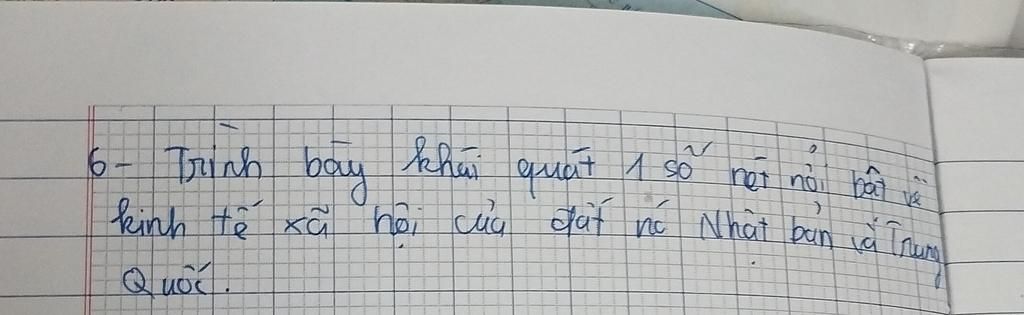 6- Trình bày khái quát 1 số nét nổi bật về
kinh tế xã hội của đất nc Nhật bản và Trung
Quốc.